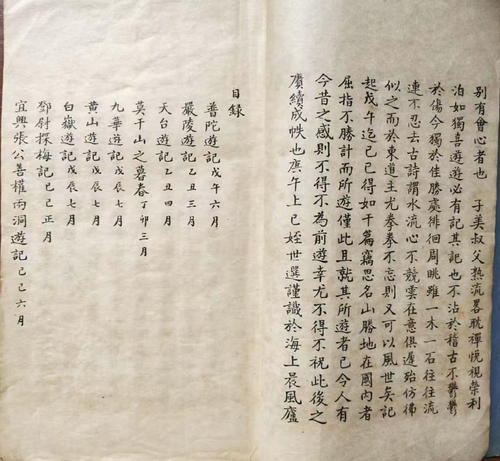 別有會心者也　子美叔父熟流畧眈禪悅視榮利
泊如獨喜遊遊必有記其記也不沾於稽古不鬱鬱
於傷今獨於佳勝處徘徊周眺雖一木一石往往流
連不忍去古詩謂水流心不競雲在意俱遲殆仿彿
似之而於東道主尤拳拳不忘則又可以風世矣記
起戊午迄己巳得如干篇竊思名山勝地在國內者
屈指不勝計而所遊僅此且就其所遊者已令人有
今昔之感則不得不為前遊幸尤不得不祝此後之
賡續成帙也庚午上巳姪世選謹識於海上晨風廬
目録
普陀遊記戊午六月
嚴陵遊記乙丑三月
天台遊記乙丑四月
莫干山之暮春丁卯三月
九華遊記戊辰七月
黃山遊記戊辰七月
白嶽遊記戊辰七月
鄧尉探梅記己巳正月
宜興張公善權兩洞遊記己巳六月